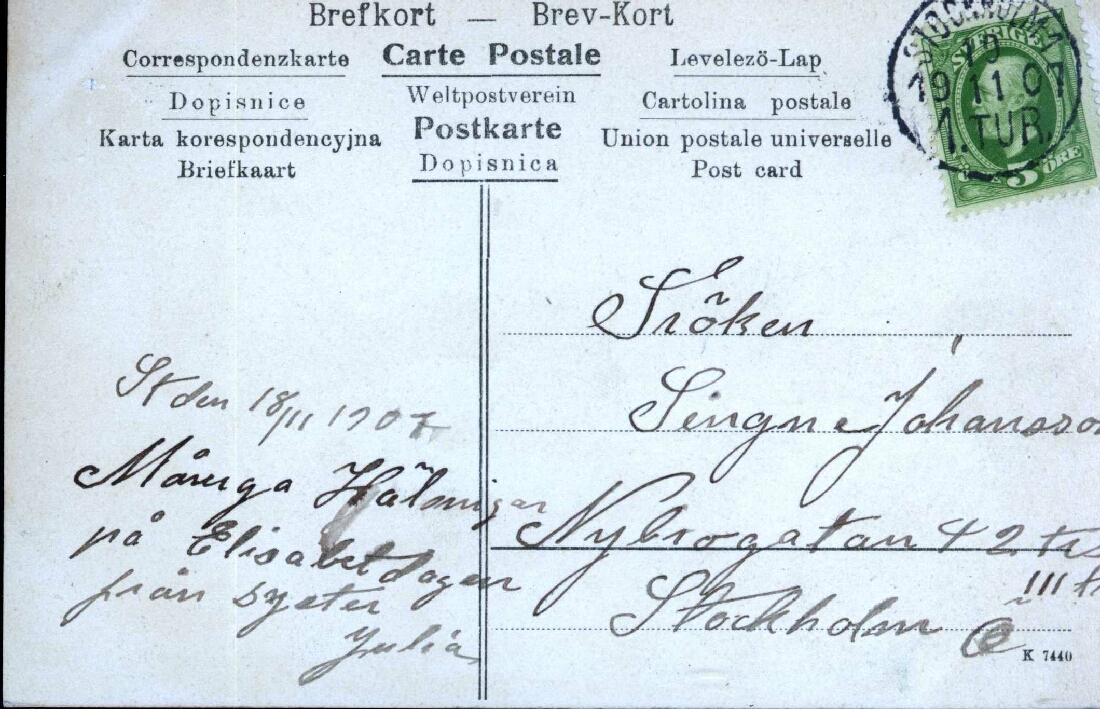 Brefkort — Brev-Kort
Correspondenzkarte Carte Postale Levelezö-Lap
Dopisnice Weltpostverein Cartolina postale
Karta korespondencyjna Postkarte Union postale universelle
Briefkaart Dopisnica Post card
STOCKHOLM 1
19
19 11 07
1.TUR.
SVERIGE
5 ÖRE
Fröken
Singne Johansson
Nybrogatan 42
III
Stockholm Ö
K 7440
St den 18/11 1907
Många Hälsnigar
på Elisabetdagen
från syster
Julia